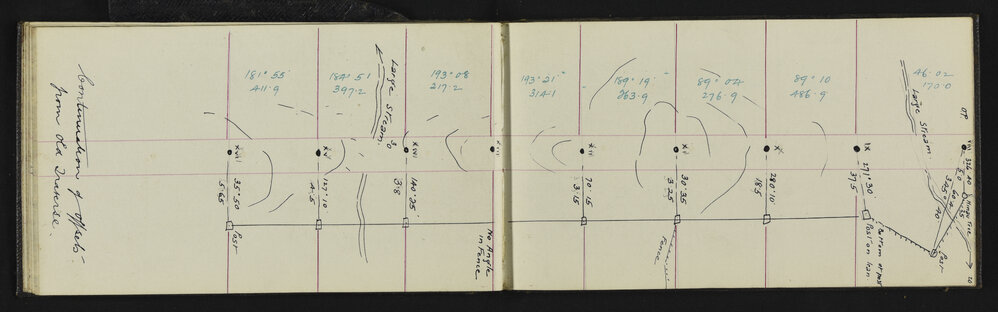 Continuation of offsets
from Old Traverse.
181° 55'
411.9
184° 51
397.2
Large Stream.
193° 08
217.2
193° 21'
314.1
189° 19'
263.9
89° 04
276.9
89° 10
486.9
46.02
170.0
Large Stream
OP
XV
XIII
XII
XI
X
IX
VIII
35° 50
5.65
127.10
4.5
140° 25'
3.8
70.15
3.15
30.35
3.25
280.10
18.5
271° 30'
37.5
Post
No Angle
in Fence
Fence
Post on Iron
Bottom of post
Post
Hinau Tree